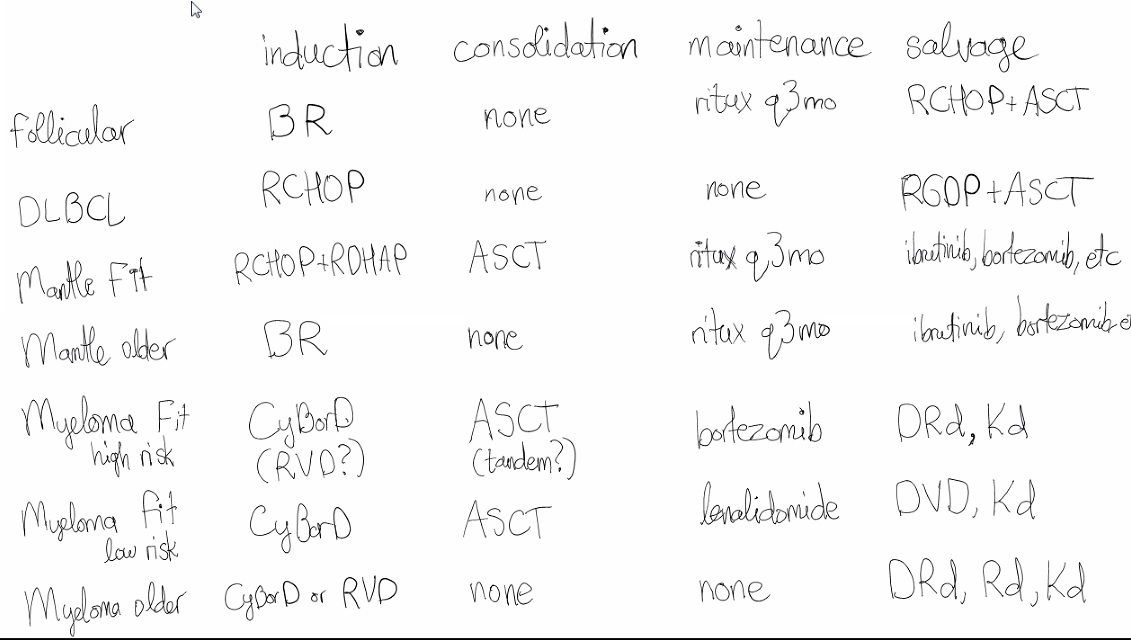 induction consolidation maintenance salvage
follicular BR none ritux q3mo RCHOP+ASCT
DLBCL RCHOP none none RGDP+ASCT
Mantle Fit RCHOP+RDHAP ASCT ritux q3mo ibrutinib, bortezomib, etc
Mantle older BR none ritux q3mo ibrutinib, bortezomib e
Myeloma Fit CyBorD ASCT bortezomib DRd, Kd
high risk (RVD?) (tandem?)
Myeloma fit CyBorD ASCT lenalidomide DVD, Kd
low risk
Myeloma older CyBorD or RVD none none DRd, Rd, Kd